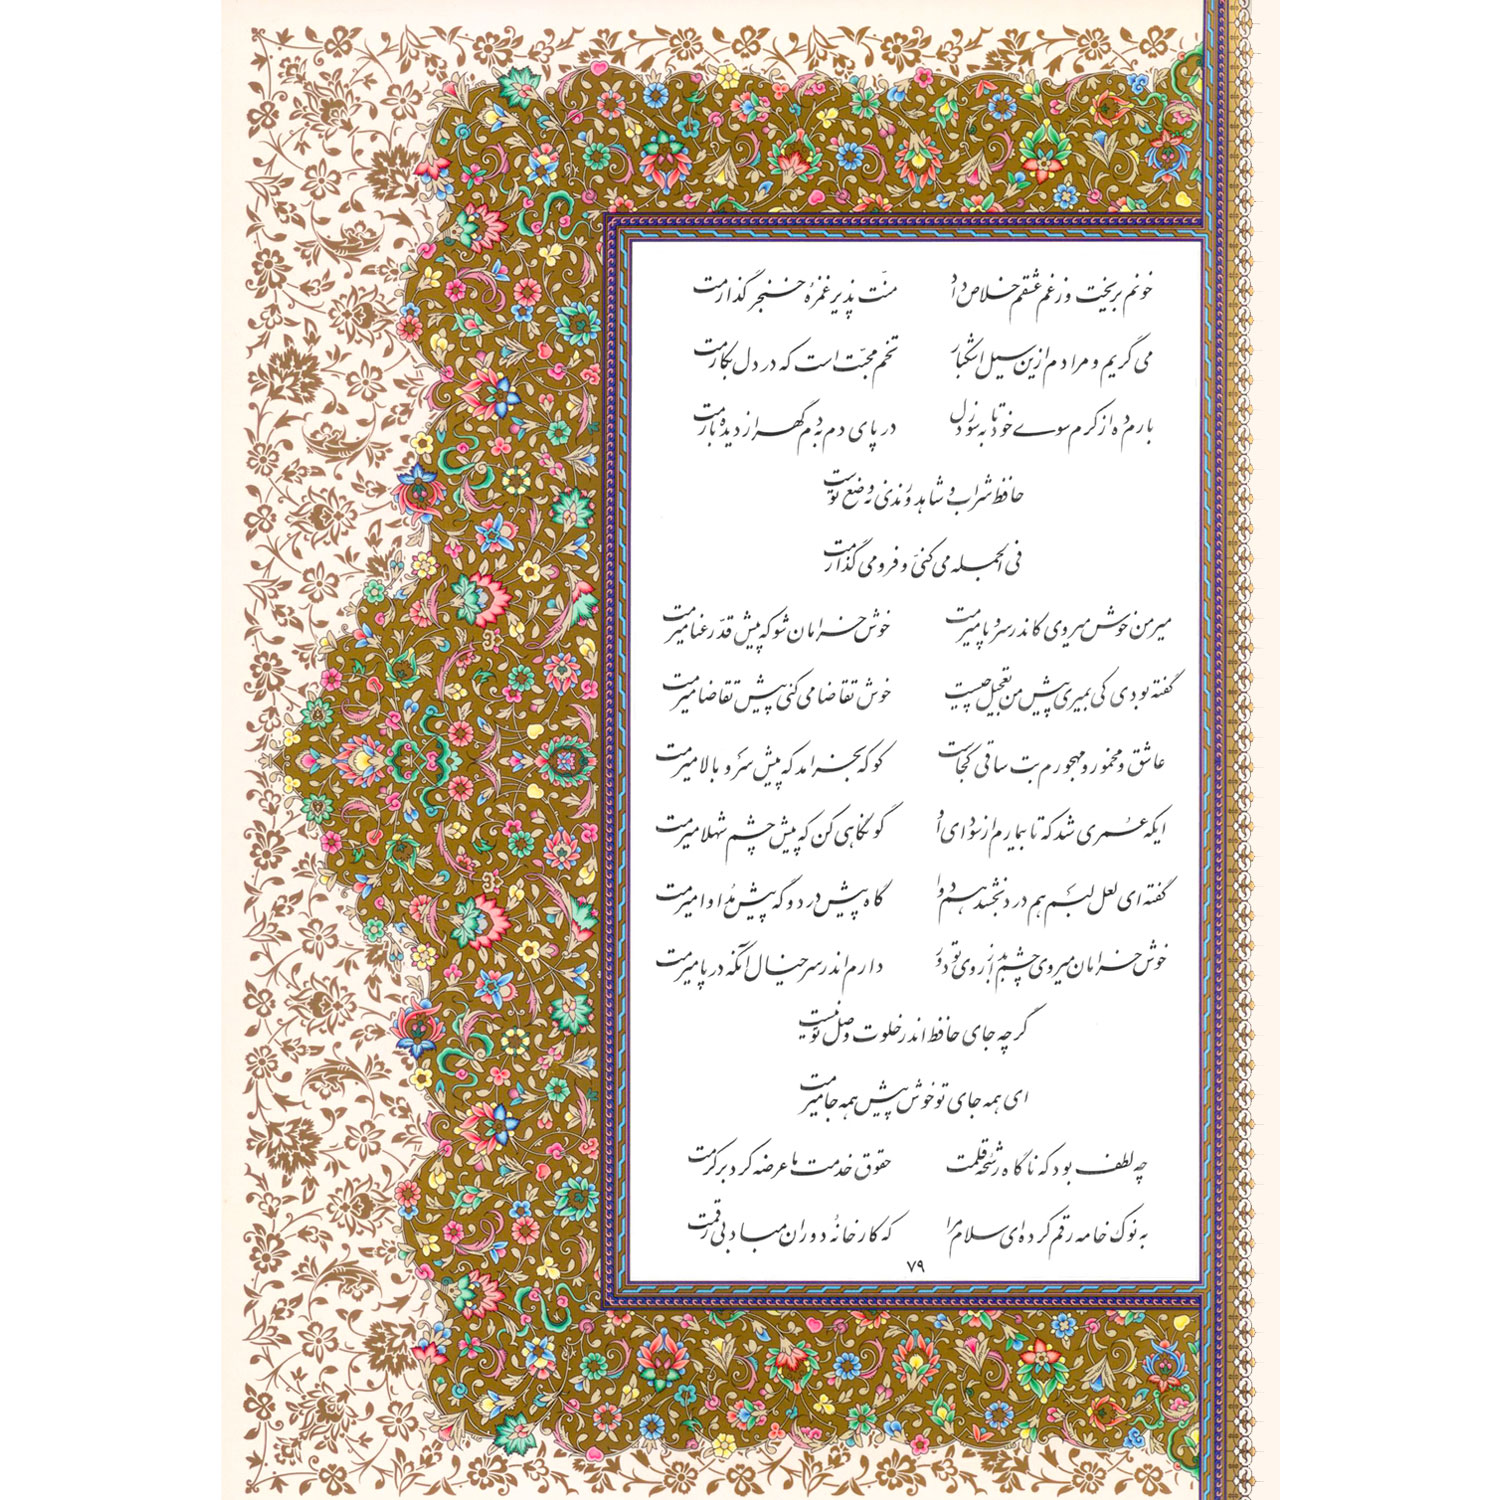 خونم بریخت وز غم عشقم خلاص داد منّت پذیر غمزهٔ خنجر گذارمت
می گریم و مرادم ازین سیل اشکبار تخم محبّت است که در دل بکارمت
بارم ده از کرم سوی خود تا به سوز دل در پای دم به دم گهر از دیده بارمت
حافظ شراب و شاهد و رندی نه وضع توست
فی الجمله می کنی و فرو می گذارمت
میر من خوش میروی کاندر سر و پا میرمت خوش خرامان شو که پیش قدّ رعنا میرمت
گفته بودی کی بمیری پیش من تعجیل چیست خوش تقاضا می کنی پیش تقاضا میرمت
عاشق و مخمور و مهجورم بت ساقی کجاست گو که بخرامد که پیش سرو بالا میرمت
ایکه عمری شد که تا بیمارم از سودای او گو نگاهی کن که پیش چشم شهلا میرمت
گفته ای لعل لبم هم درد بخشد هم دوا گاه پیش درد و گه پیش مداوا میرمت
خوش خرامان میروی چشم بد از روی تو دور دارم اندر سر خیال آنکه در پا میرمت
گرچه جای حافظ اندر خلوت وصل تو نیست
ای همه جای تو خوش پیش همه جا میرمت
چه لطف بود که ناگاه رشحهٔ قلمت حقوق خدمت ما عرضه کرد بر کرمت
به نوک خامه رقم کرده ای سلام مرا که کارخانهٔ دوران مباد بی رقمت
۷۹